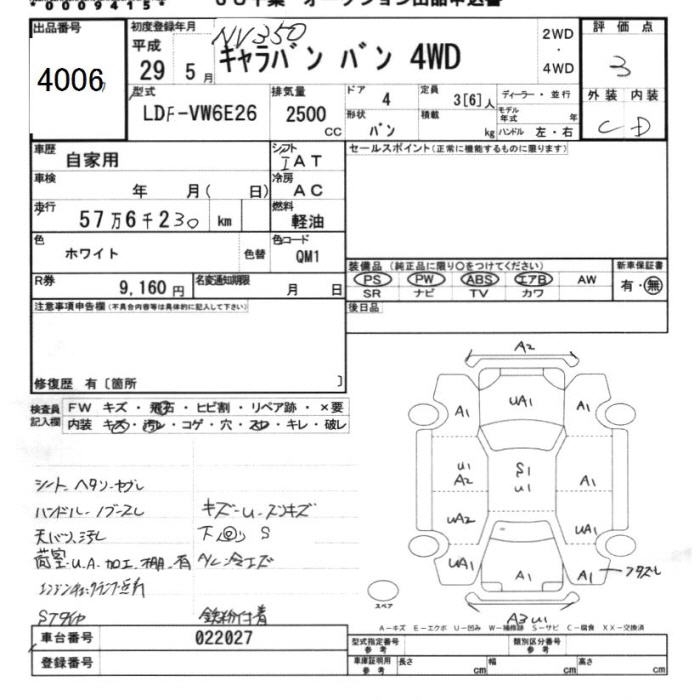 * 0 0 0 9 4 1 5 *
出品番号
4006
初度登録年月
平成
29 5月
NV350
キャラバン バン 4WD
2WD
・
4WD
評価点
3
外装 内装
C D
型式
LDF-VW6E26
排気量
2500 cc
ドア
4
形状
バン
定員
3[6]人
積載
kg
ディーラー・並行
モデル年式 年
ハンドル 左・右
車歴
自家用
シフト
IAT
セールスポイント(正常に機能するものに限ります)
車検
年 月( 日)
冷房
AC
走行
57万6千230 km
燃料
軽油
色
ホワイト
色替
色コード
QM1
装備品(純正品に限り○をつけてください)
新車保証書
PS PW ABS エアB AW
SR ナビ TV カワ
有・無
R券
9,160円
名変通知期限
月 日
後日品
注意事項申告欄(不具合内容等は具体的に記入して下さい)
修復歴 有〔箇所 〕
検査員記入欄
FW キズ・飛石・ヒビ割・リペア跡・×要
内装 キズ・汚レ・コゲ・穴・スレ・キレ・破レ
シートヘタリ-ヤブレ
ハンドル-ノブ-スレ
天バリ汚レ
荷室-U.A.加工.棚.有
STタイヤ
キズ-U-スリキズ
下回 S
鉄粉付着
A2
A1 UA1 A1
U1
A2
S1
U1
A1
UA2 UA1
UA1 A1 A1
A3 U1
スペア
A-キズ E-エクボ U-凹み W-補修跡 S-サビ C-腐食 XX-交換済
車台番号
022027
登録番号
型式指定番号
参考
類別区分番号
参考
車庫証明用
参考
長さ cm
幅 cm
高さ cm